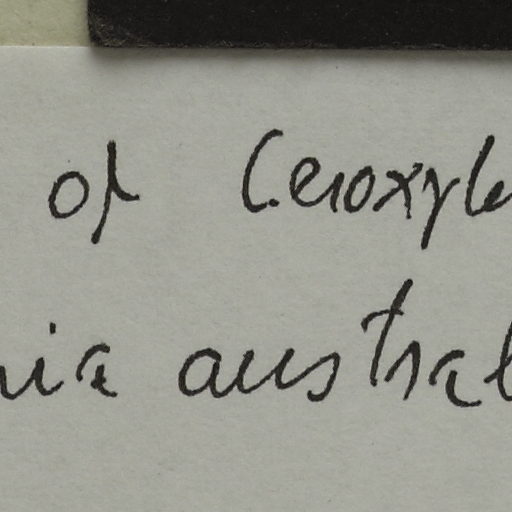 of Ceroxyle
nia austral